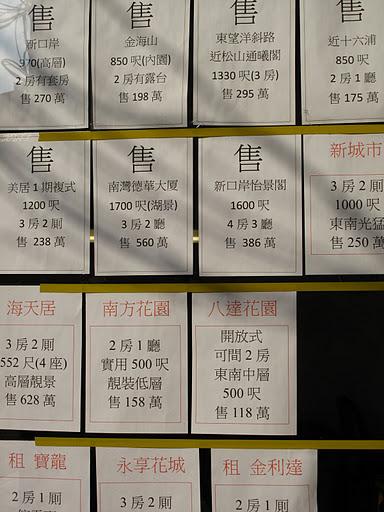 售
新口岸
970(高層)
2房有套房
售 270 萬
售
金海山
850 呎(內園)
2房有露台
售 198 萬
售
東望洋斜路
近松山通曦閣
1330 呎(3 房)
售 295 萬
售
近十六浦
850 呎
2 房 1 廳
售 175 萬
售
美居 1 期複式
1200 呎
3 房 2 厠
售 238 萬
售
南灣德華大厦
1700 呎(湖景)
3 房 2 廳
售 560 萬
售
新口岸怡景閣
1600 呎
4 房 3 廳
售 386 萬
新城市
3 房 2 厠
1000 呎
東南光猛
售 250 萬
海天居
3 房 2 厠
552 尺(4 座)
高層靚景
售 628 萬
南方花園
2 房 1 廳
實用 500 呎
靚裝低層
售 158 萬
八達花園
開放式
可間 2 房
東南中層
500 呎
售 118 萬
租 寶龍
2 房 1 厠
永享花城
3 房 2 厠
租 金利達
2 房 1 厠